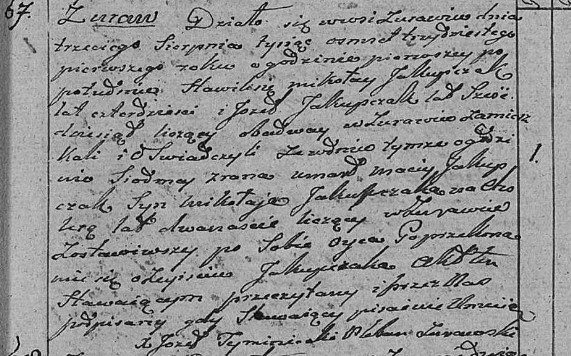 67. Żuraw Działo się we wsi Żurawiu dnia
trzeciego Sierpnia tysiąc osmset trzydziestego
pierwszego roku o godzinie pierwszey po
południu Stawili się mikołay Jakupczak
lat czterdziesci i Jozef Jakupczak lat
dziesiąt liczący obadway w Żurawiu zamiesz
kali i Oswiadczyli ze w dniu tymze o godzi
nie Siodmey zrana umarł Maciey Jakup
czak Syn mikołaja Jakupczaka na Cho
lerę lat dwanascie liczący w Żurawiu
Zostawiwszy po Sobie Oyca Po przekona
niu się o Zeysciu Jakupczaka Akt ten
Stawaiącym przeczytany i przez Nas
podpisany gdy Stawaiący pisać nie Umieią
X Jozef Pleban Zurawski
1.